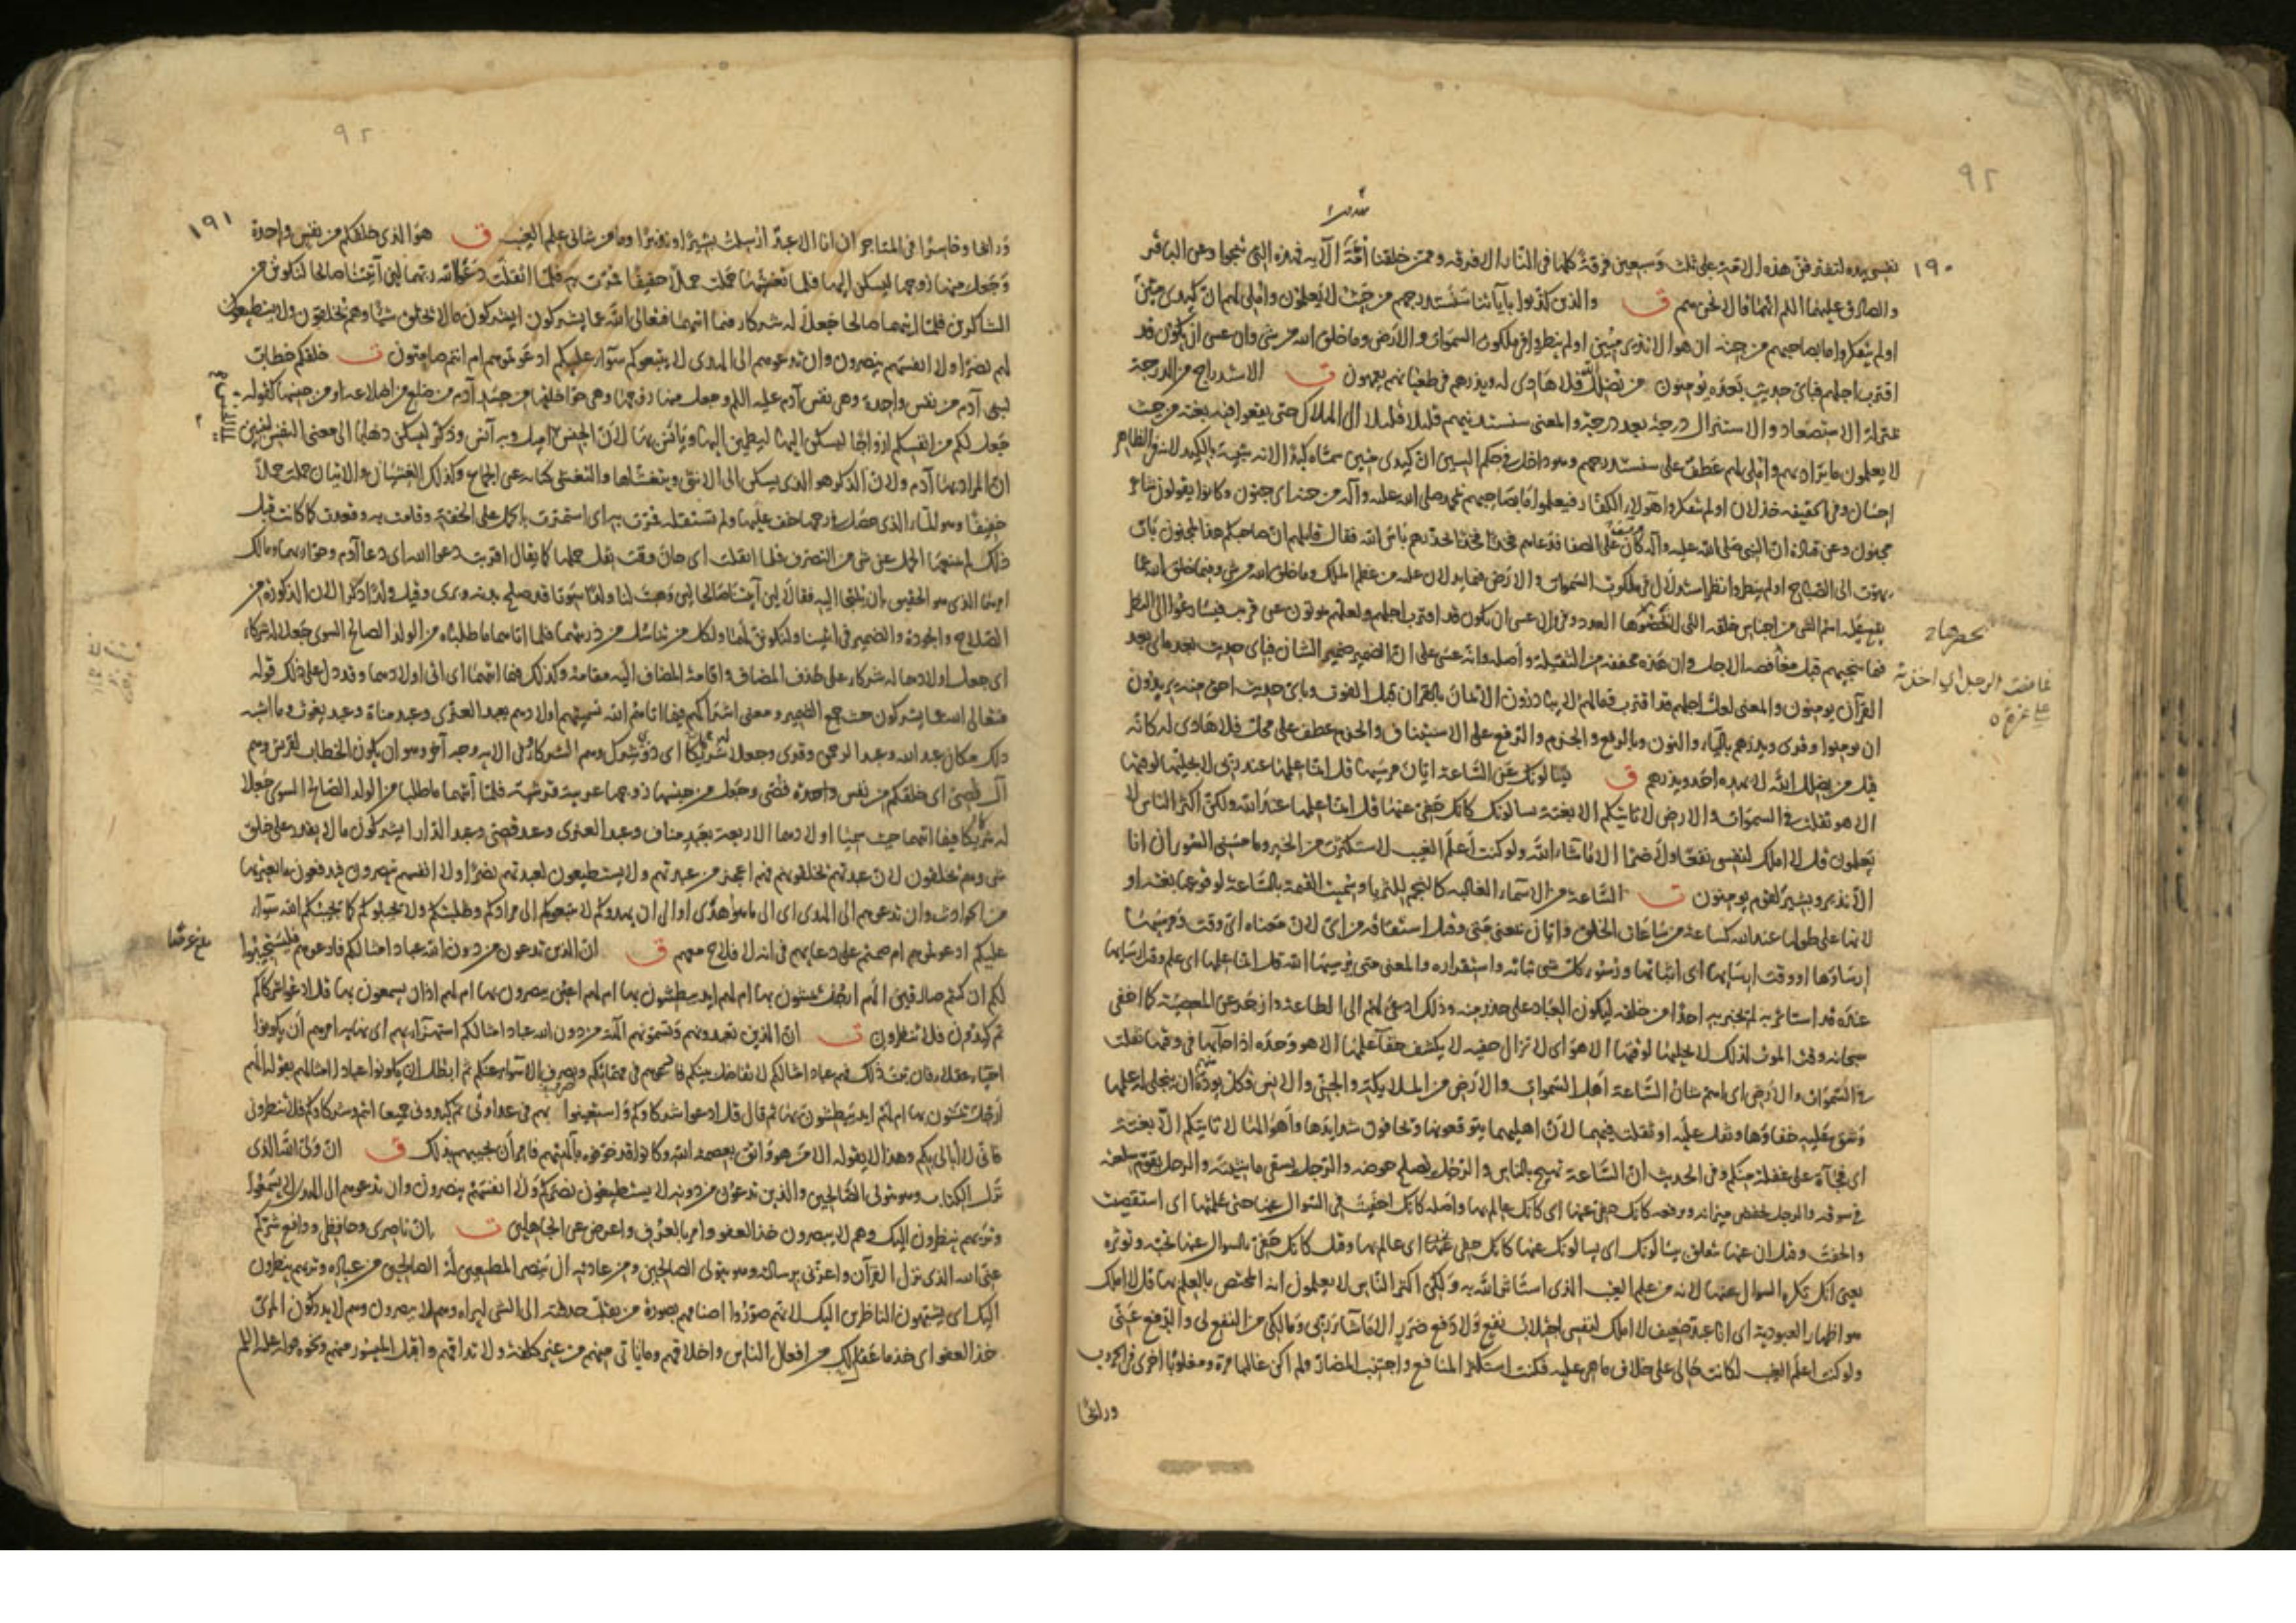 ٩٢
١٩٠
نفسي بيده لتفترقن هذه الامة على ثلث وسبعين فرقة كلها في النار الا فرقة وممن خلقنا امة الآية فهذه التي تنجوا وعن الباقر
والصادق عليهما السلم انهما قالا نحن هم ق والذين كذبوا بآياتنا سنستدرجهم من حيث لا يعلمون واملي لهم ان كيدي متين
اولم يتفكروا ما بصاحبهم من جنة ان هو الا نذير مبين اولم ينظروا في ملكوت السموات والارض وما خلق الله من شئ وان عسى ان يكون قد
اقترب اجلهم فبأي حديث بعده يؤمنون من يضلل الله فلا هادي له ويذرهم في طغيانهم يعمهون ت الاستدراج من الدرجة
بمنزلة الاستصعاد والاستنزال درجة بعد درجة والمعنى سنستدنيهم قليلا قليلا الى الهلاك حتى يقعوا فيه بغتة من حيث
لا يعلمون ما يراد بهم واملي لهم عطف على سنستدرجهم وهو داخل في حكم السين ان كيدي متين سماه كيدا لانه شبيه بالكيد لانه في الظاهر
احسان وفي الحقيقة خذلان اولم يتفكروا هؤلاء الكفار فيعلموا ما بصاحبهم محمد صلى الله عليه وآله من جنة اي جنون وكانوا يقولون شاعر
مجنون وعن قتادة ان النبي صلى الله عليه وآله كان على الصفا فدعاهم فخذا فخذا يحذرهم بأس الله فقال قائلهم ان صاحبكم هذا لمجنون بات
يهوت الى الصباح اولم ينظروا نظر استدلال في ملكوت السموات والارض فيما يدلان عليه من عظم الملك وما خلق الله من شئ وفيما خلق الله مما
يقع عليه اسم الشئ من اجناس خلقه التي لا يحصرها العدد وفي وان عسى ان يكون قد اقترب اجلهم ولعلهم يموتون عن قريب فيسارعوا الى النظر
فيما ينجيهم قبل مغافصة الاجل وان هذه مخففة من الثقيلة واصله وانه عسى على ان الضمير ضمير الشان فبأي حديث بعده اي بعد
القرآن يؤمنون والمعنى لعل اجلهم قد اقترب فما لهم لا يبادرون الايمان بالقرآن قبل الفوت وبأي حديث احق منه يريدون
ان يؤمنوا وقرئ ويذرهم بالياء والنون وبالرفع والجزم والرفع على الاستيناف والجزم عطف على محل فلا هادي له كانه
قيل من يضلل الله لا يهده احد ويذرهم ق يسألونك عن الساعة ايان مرسيها قل انما علمها عند ربي لا يجليها لوقتها
الا هو ثقلت في السموات والارض لا تأتيكم الا بغتة يسألونك كانك حفي عنها قل انما علمها عند الله ولكن اكثر الناس لا
يعلمون قل لا املك لنفسي نفعا ولا ضرا الا ما شاء الله ولو كنت اعلم الغيب لاستكثرت من الخير وما مسني السوء ان انا
الا نذير وبشير لقوم يؤمنون ت الساعة من الاسماء الغالبة كالنجم للثريا وسميت القيمة بالساعة لوقوعها بغتة او
لانها على طولها عند الله كساعة من ساعات الخلق وايان بمعنى متى وقيل اشتقاقه من اي لان معناه اي وقت ومرسيها
ارساؤها او وقت ارسائها اي اثباتها ورسو كل شئ ثباته واستقراره والمعنى متى يرسيها الله قل انما علمها اي علم وقت ارسائها
عنده قد استأثر به لم يخبر به احدا من خلقه ليكون العباد على حذر منه وذلك ادعى لهم الى الطاعة وازجر عن المعصية كما اخفى
سبحانه وقت الموت لذلك لا يجليها لوقتها الا هو اي لا تزال خفية لا يكشف خفاء علمها الا هو وحده اذا جاء بها في وقتها ثقلت
في السموات والارض اي اهم شان الساعة اهل السموات والارض من الملائكة والجن والانس فكل يود ان يتجلى له علمها
وشق عليه خفاؤها وثقل عليه او ثقلت فيهما لان اهلهما يتوقعونها وتخافون شدايدها واهوالها لا تأتيكم الا بغتة
اي فجأة على غفلة منكم وفي الحديث ان الساعة تهيج بالناس والرجل يصلح حوضه والرجل يسقي ماشيته والرجل يقوم سلعته
في سوقه والرجل يخفض ميزانه ويرفعه كانك حفي عنها اي كانك عالم بها واصله كانك احفيت في السؤال عنها حتى علمتها اي استقصيت
والحفت وقيل ان عنها متعلق بيسألونك اي يسألونك عنها كانك حفي عنها اي عالم بها وقيل كانك حفي بالسؤال عنها تحبه وتؤثره
يعني انك تكره السؤال عنها لانه من علم الغيب الذي استأثر الله به ولكن اكثر الناس لا يعلمون انه المختص بالعلم بها قل لا املك
هو اظهار العبودية اي انا عبد ضعيف لا املك لنفسي اجتلاب نفع ولا دفع ضرر الا ما شاء ربي ومالكي من النفع لي والدفع عني
ولو كنت اعلم الغيب لكانت حالي على خلاف ما هي عليه فكنت استكثر المنافع واجتنب المضار ولم اكن غالبا مرة ومغلوبا اخرى في الحروب
ورابحا
يحصرها
غافصت الرجل اي اخذته
على غرة
٩٢
١٩١
ورابحا وخاسرا في المتاجر ان انا الا عبد ارسلت بشيرا ونذيرا وما من شاني علم الغيب ق هو الذي خلقكم من نفس واحدة
وجعل منها زوجها ليسكن اليها فلما تغشيها حملت حملا خفيفا فمرت به فلما اثقلت دعوا الله ربهما لئن آتيتنا صالحا لنكونن من
الشاكرين فلما اتيهما صالحا جعلا له شركاء فيما اتيهما فتعالى الله عما يشركون ايشركون ما لا يخلق شيئا وهم يخلقون ولا يستطيعون
لهم نصرا ولا انفسهم ينصرون وان تدعوهم الى الهدى لا يتبعوكم سواء عليكم ادعوتموهم ام انتم صامتون ت خلقكم خطاب
لبني آدم من نفس واحدة وهي نفس آدم عليه السلم وجعل منها زوجها وهي حوا خلقها من جسد آدم من ضلع من اضلاعه او من جنسها كقوله
جعل لكم من انفسكم ازواجا ليسكن اليها ليطمئن اليها ويأنس بها لان الجنس اميل وبه آنس وذكر ليسكن ذهابا الى معنى النفس ليبين
ان المراد بها آدم ولان الذكر هو الذي يسكن الى الانثى ويتغشاها والتغشي كناية عن الجماع وكذلك الغشيان والاتيان حملت حملا
خفيفا وهو الماء الذي حصل في رحمها خف عليها ولم تستثقله فمرت به اي استمرت بالحمل على الخفة وقامت به وقعدت كما كانت قبل
ذلك لم يمنعها الحمل عن شئ من التصرف فلما اثقلت اي حان وقت ثقل حملها كما يقال اقربت دعوا الله اي دعا آدم وحوا ربهما ومالك
امرهما الذي هو الحقيق بان يلتجأ اليه فقالا لئن آتيتنا صالحا لئن وهبت لنا ولدا سويا قد صلح بدنه وبرئ وقيل ولدا ذكرا لان الذكورة من
الصلاح والجودة والضمير في آتيتنا ولنكونن لهما ولكل من تناسل من ذريتهما فلما اتاهما ما طلباه من الولد الصالح السوي جعلا له شركاء
اي جعل اولادهما له شركاء على حذف المضاف واقامة المضاف اليه مقامه وكذلك فيما اتيهما اي اتى اولادهما وقد دل على ذلك قوله
فتعالى الله عما يشركون حيث جمع الضمير ومعنى اشراكهم فيما اتاهم الله تسميتهم اولادهم بعبد العزى وعبد مناة وعبد يغوث وما اشبه
ذلك مكان عبد الله وعبد الرحمن وقرئ وجعلا له شركا اي ذوي شرك وهم الشركاء وفي الآية وجه آخر وهو ان يكون الخطاب لقريش وهم
آل قصي اي خلقكم من نفس واحدة قصي وجعل من جنسها زوجها عربية قرشية فلما آتيهما ما طلبا من الولد الصالح السوي جعلا
له شركاء فيما اتيهما حيث سميا اولادهما الاربعة بعبد مناف وعبد العزى وعبد قصي وعبد الدار ايشركون ما لا يقدر على خلق
شئ وهم يخلقون لان عبدتهم يخلقونهم فهم اعجز من عبدتهم ولا يستطيعون لعبدتهم نصرا ولا انفسهم ينصرون فيدفعون ما يعتريها
من الحوادث وان تدعوهم الى الهدى اي الى ما هو هدى او الى ان يهدوكم لا يتبعوكم الى مرادكم وطلبتكم ولا يجيبوكم كما يجيبكم الله سواء
عليكم ادعوتموهم ام صمتم على دعائهم في انه لا فلاح معهم ق ان الذين تدعون من دون الله عباد امثالكم فادعوهم فليستجيبوا
لكم ان كنتم صادقين الهم ارجل يمشون بها ام لهم ايد يبطشون بها ام لهم اعين يبصرون بها ام لهم اذان يسمعون بها قل ادعوا شركاءكم
ثم كيدون فلا تنظرون ت ان الذين تعبدونهم وتسمونهم آلهة من دون الله عباد امثالكم استهزاء بهم اي نهاية امرهم ان يكونوا
احياء عقلاء فان ثبت ذلك فهم عباد امثالكم لا تفاضل بينكم ثم ابطل ان يكونوا عبادا امثالهم بقوله الهم
ارجل يمشون بها ام لهم ايد يبطشون بها ثم قال قل ادعوا شركاءكم واستعينوا بهم في عداوتي ثم كيدوني جميعا انتم وشركاؤكم فلا تنظروني
فاني لا ابالي بكم وهذا لا يقوله الا من هو واثق بعصمة الله وكانوا قد خوفوه بآلهتهم فامر ان يجيبهم بذلك ق ان وليي الله الذي
نزل الكتاب وهو يتولى الصالحين والذين تدعون من دونه لا يستطيعون نصركم ولا انفسهم ينصرون وان تدعوهم الى الهدى لا يسمعوا
وتريهم ينظرون اليك وهم لا يبصرون خذ العفو وامر بالعرف واعرض عن الجاهلين ت ان ناصري وحافظي ودافع شركم
عني الله الذي نزل القرآن واعزني برسالته وهو يتولى الصالحين ومن عادته ان ينصر المطيعين له الصالحين من عباده وتريهم ينظرون
اليك اي يشبهون الناظرين اليك لانهم صوروا اصنامهم بصورة من يقلب حدقته الى الشئ ليراه وهم لا يبصرون وهم لا يدركون المرئي
خذ العفو اي خذ ما عفا لك من افعال الناس واخلاقهم وما يأتي منهم من غير كلفة ولا تداقهم واقبل الميسور منهم ونحوه قوله عليه السلم
بلغ عرضا